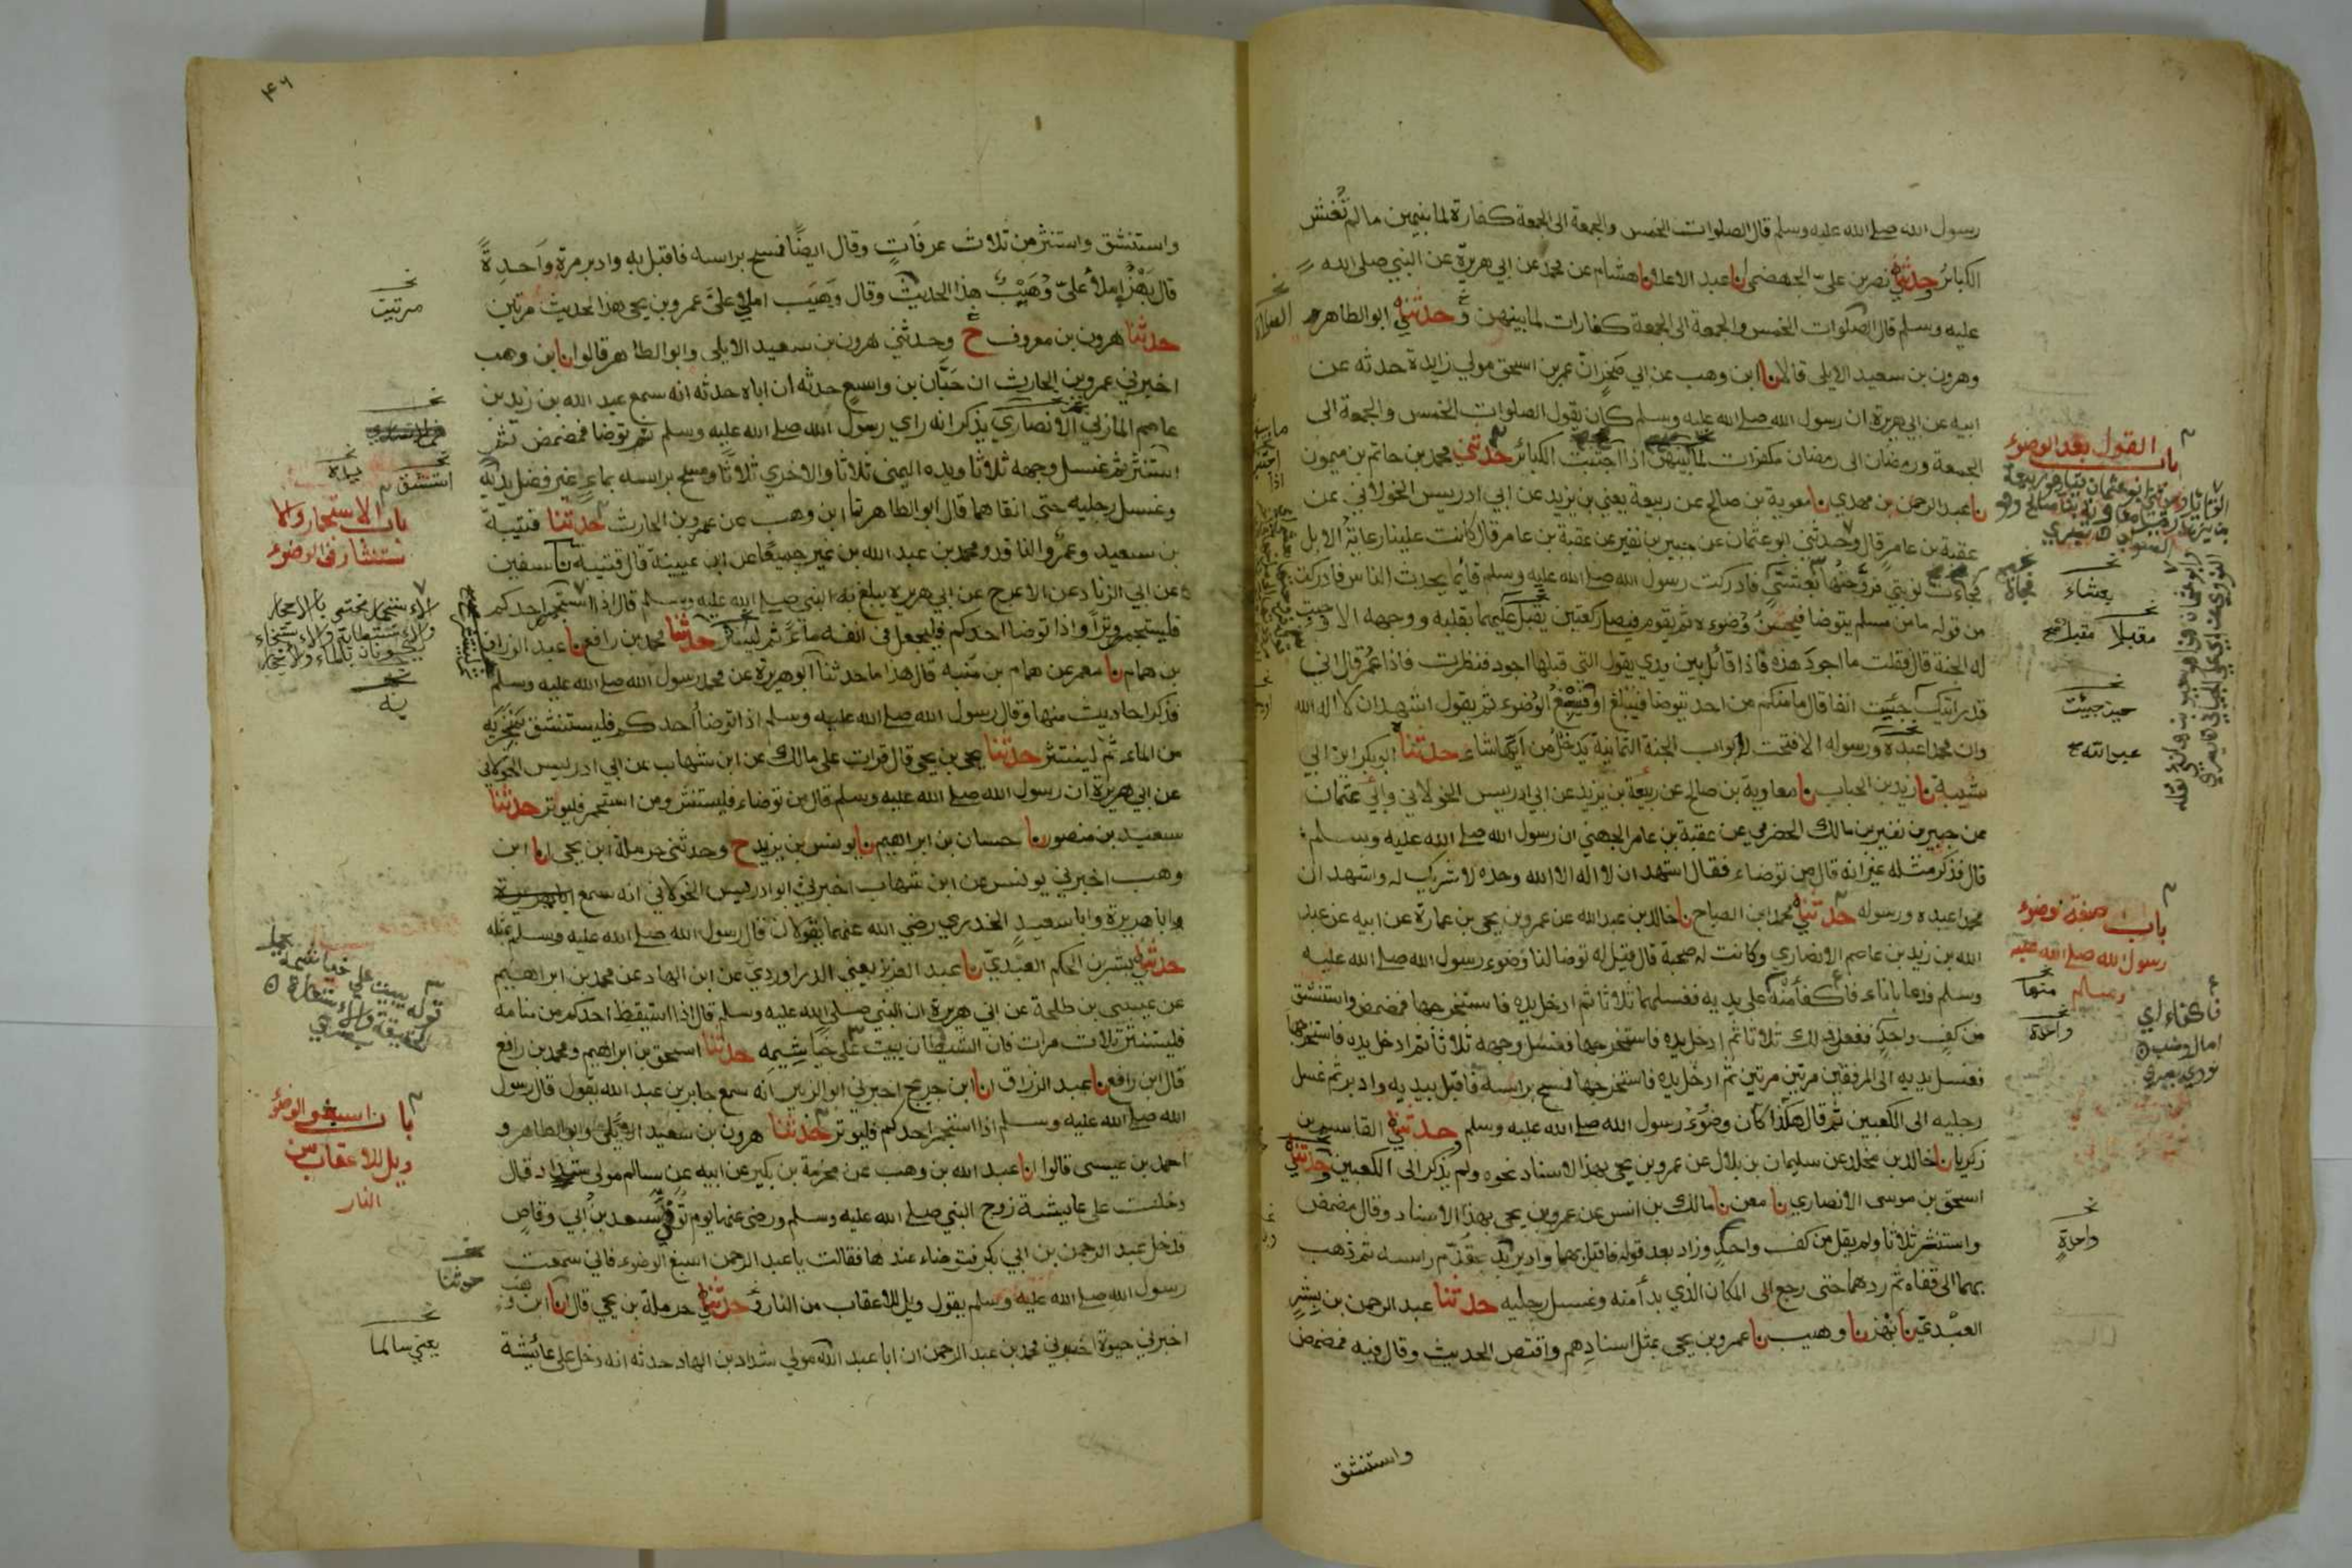 رسول الله صلى الله عليه وسلم قال الصلوات الخمس والجمعة الى الجمعة كفارة لما بينهن ما لم تغش
الكبائر وحدثني نصر بن علي الجهضمي نا عبد الاعلى نا هشام عن محمد عن ابي هريرة عن النبي صلى الله
عليه وسلم قال الصلوات الخمس والجمعة الى الجمعة كفارات لما بينهن وحدثني ابو الطاهر
وهرون بن سعيد الايلي قالا نا ابن وهب عن ابي صخر ان عمر بن اسحق مولي زايدة حدثه عن
ابيه عن ابي هريرة ان رسول الله صلى الله عليه وسلم كان يقول الصلوات الخمس والجمعة الى
الجمعة ورمضان الى رمضان مكفرات لما بينهن اذا اجتنبت الكبائر حدثني محمد بن حاتم بن ميمون
نا عبد الرحمن بن مهدي نا معوية بن صالح عن ربيعة يعني بن يزيد عن ابي ادريس الخولاني عن
عقبة بن عامر قال وحدثني ابو عثمان عن جبير بن نفير عن عقبة بن عامر قال كانت علينا رعاية الابل
فجاءت نوبتي فروحتها بعشي فادركت رسول الله صلى الله عليه وسلم قائما يحدث الناس فادركت
من قوله ما من مسلم يتوضا فيحسن وضوءه ثم يقوم فيصلي ركعتين يقبل عليهما بقلبه ووجهه الا وجبت
له الجنة قال فقلت ما اجود هذه فاذا قائل بين يدي يقول التي قبلها اجود فنظرت فاذا عمر قال اني
قد رايتك جئيت انفا قال ما منكم من احد يتوضا فيبلغ او فيسبغ الوضوء ثم يقول اشهد ان لا اله الا الله
وان محمدا عبده ورسوله الا فتحت له ابواب الجنة الثمانية يدخل من ايها شاء حدثنا ابو بكر ابن ابي
شيبة نا زيد بن الحباب نا معاوية بن صالح عن ربيعة بن يزيد عن ابي ادريس الخولاني وابي عثمان
عن جبير بن نفير بن مالك الحضرمي عن عقبة بن عامر الجهني ان رسول الله صلى الله عليه وسلم
قال فذكر مثله غير انه قال من توضاء فقال اشهد ان لا اله الا الله وحده لا شريك له واشهد ان
محمدا عبده ورسوله حدثني محمد ابن الصباح نا خالد بن عبد الله عن عمرو بن يحيى بن عمارة عن ابيه عن عبد
الله بن زيد بن عاصم الانصاري وكانت له صحبة قال قيل له توضا لنا وضوء رسول الله صلى الله عليه
وسلم فدعا باناء فاكفا منه على يديه فغسلهما ثلاثا ثم ادخل يده فاستخرجها فمضمض واستنشق
من كف واحد ففعل ذلك ثلاثا ثم ادخل يده فاستخرجها فغسل وجهه ثلاثا ثم ادخل يده فاستخرجها
فغسل يديه الى المرفقين مرتين مرتين ثم ادخل يده فاستخرجها فمسح براسه فاقبل بيديه وادبر ثم غسل
رجليه الى الكعبين ثم قال هكذا كان وضوء رسول الله صلى الله عليه وسلم وحدثني القاسم بن
زكريا نا خالد بن مخلد عن سليمان بن بلال عن عمرو بن يحيى بهذا الاسناد نحوه ولم يذكر الى الكعبين وحدثني
اسحق بن موسى الانصاري نا معن نا مالك بن انس عن عمرو بن يحيى بهذا الاسناد وقال مضمض
واستنثر ثلاثا ولم يقل من كف واحد وزاد بعد قوله فاقبل بهما وادبر بدا بمقدم راسه ثم ذهب
بهما الى قفاه ثم ردهما حتى رجع الى المكان الذي بدأ منه وغسل رجليه حدثنا عبد الرحمن بن بشر
العبدي نا بهز نا وهيب نا عمرو بن يحيى بمثل اسنادهم واقتص الحديث وقال فيه فمضمض
واستنشق
باب القول بعد الوضوء
بعشاء
مقبلا
حين جيئت
عبد الله
باب صفة توضوء
رسول الله صلى الله عليه
وسلم
منها
واحدة
فاكفاء اي
امال وصب
نووي
واحدة
٤٦
واستنشق واستنثر من ثلاث غرفات وقال ايضا فمسح براسه فاقبل به وادبر مرة واحدة
قال بهز املأ علي وهيب هذا الحديث وقال وهيب املي على عمرو بن يحيى هذا الحديث مرتين
حدثنا هرون بن معروف ح وحدثني هرون بن سعيد الايلي وابو الطاهر قالوا نا ابن وهب
اخبرني عمرو بن الحارث ان حبان بن واسع حدثه ان اباه حدثه انه سمع عبد الله بن زيد بن
عاصم المازني الانصاري يذكر انه راي رسول الله صلى الله عليه وسلم توضا فمضمض ثم
استنثر ثم غسل وجهه ثلاثا ويده اليمنى ثلاثا والاخري ثلاثا ومسح براسه بماء غير فضل يديه
وغسل رجليه حتى انقاهما قال ابو الطاهر نا ابن وهب عن عمرو بن الحارث حدثنا قتيبة
بن سعيد وعمرو الناقد ومحمد بن عبد الله بن نمير جميعا عن ابن عيينة قال قتيبة نا سفين
عن ابي الزناد عن الاعرج عن ابي هريرة يبلغ به النبي صلى الله عليه وسلم قال اذا استجمر احدكم
فليستجمر وترا واذا توضا احدكم فليجعل في انفه ماء ثم لينثر حدثنا محمد بن رافع نا عبد الرزاق
بن همام نا معمر عن همام بن منبه قال هذا ما حدثنا ابو هريرة عن محمد رسول الله صلى الله عليه وسلم
فذكر احاديث منها وقال رسول الله صلى الله عليه وسلم اذا توضا احدكم فليستنشق بمنخريه
من الماء ثم لينتثر حدثنا يحيى بن يحيى قال قرات على مالك عن ابن شهاب عن ابي ادريس الخولاني
عن ابي هريرة ان رسول الله صلى الله عليه وسلم قال من توضاء فليستنثر ومن استجمر فليوتر حدثنا
سعيد بن منصور نا حسان بن ابراهيم نا يونس بن يزيد ح وحدثني حرملة ابن يحيى انا ابن
وهب اخبرني يونس عن ابن شهاب اخبرني ابو ادريس الخولاني انه سمع
ابا هريرة وابا سعيد الخدري رضي الله عنهما يقولان قال رسول الله صلى الله عليه وسلم بمثله
حدثني بشر بن الحكم العبدي نا عبد العزيز يعني الدراوردي عن ابن الهاد عن محمد بن ابراهيم
عن عيسى بن طلحة عن ابي هريرة ان النبي صلى الله عليه وسلم قال اذا استيقظ احدكم من منامه
فليستنثر ثلاث مرات فان الشيطان يبيت على خياشيمه حدثنا اسحق بن ابراهيم ومحمد بن رافع
قال ابن رافع نا عبد الرزاق انا ابن جريج اخبرني ابو الزبير انه سمع جابر بن عبد الله يقول قال رسول
الله صلى الله عليه وسلم اذا استجمر احدكم فليوتر حدثنا هرون بن سعيد الايلي وابو الطاهر و
احمد بن عيسى قالوا انا عبد الله بن وهب عن مخرمة بن بكير عن ابيه عن سالم مولى شداد قال
دخلت على عايشة زوج النبي صلى الله عليه وسلم ورضى عنها يوم توفي سعد بن ابي وقاص
فدخل عبد الرحمن بن ابي بكر فتوضاء عندها فقالت يا عبد الرحمن اسبغ الوضوء فاني سمعت
رسول الله صلى الله عليه وسلم يقول ويل للاعقاب من النار وحدثني حرملة بن يحيى قال انا ابن وهب
اخبرني حيوة اخبرني محمد بن عبد الرحمن ان ابا عبد الله مولي شداد بن الهاد حدثه انه دخل على عائشة
مرتين
استنشق
يده
باب الاستجمار والا
ستنثار في الوضوء
باب اسبغو الوضؤ
ويل للاعقاب من
النار
حدثنا
يعني سالما